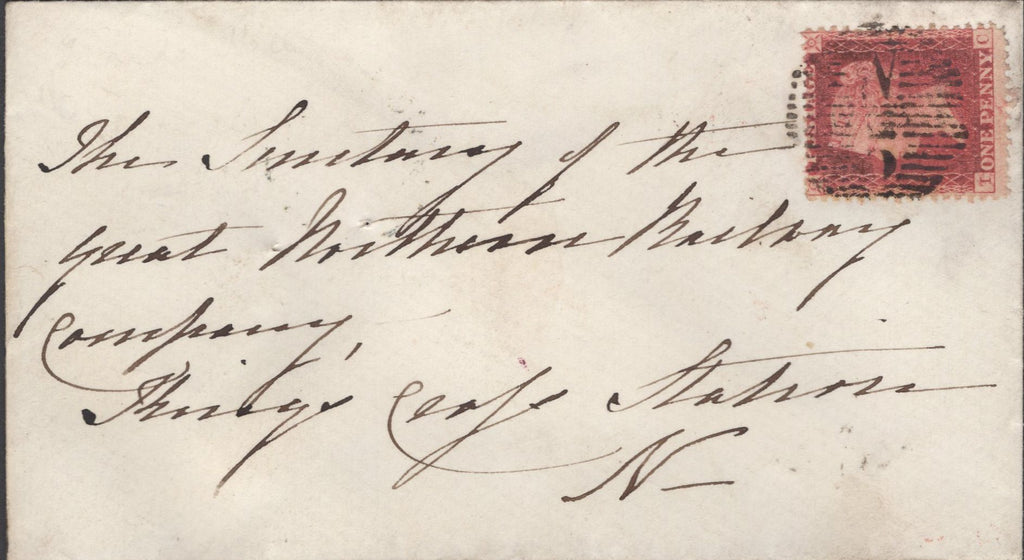 The Secretary of the
Great Northern Railway
Company,
Kings Cross Station
N
POSTAGE
ONE PENNY